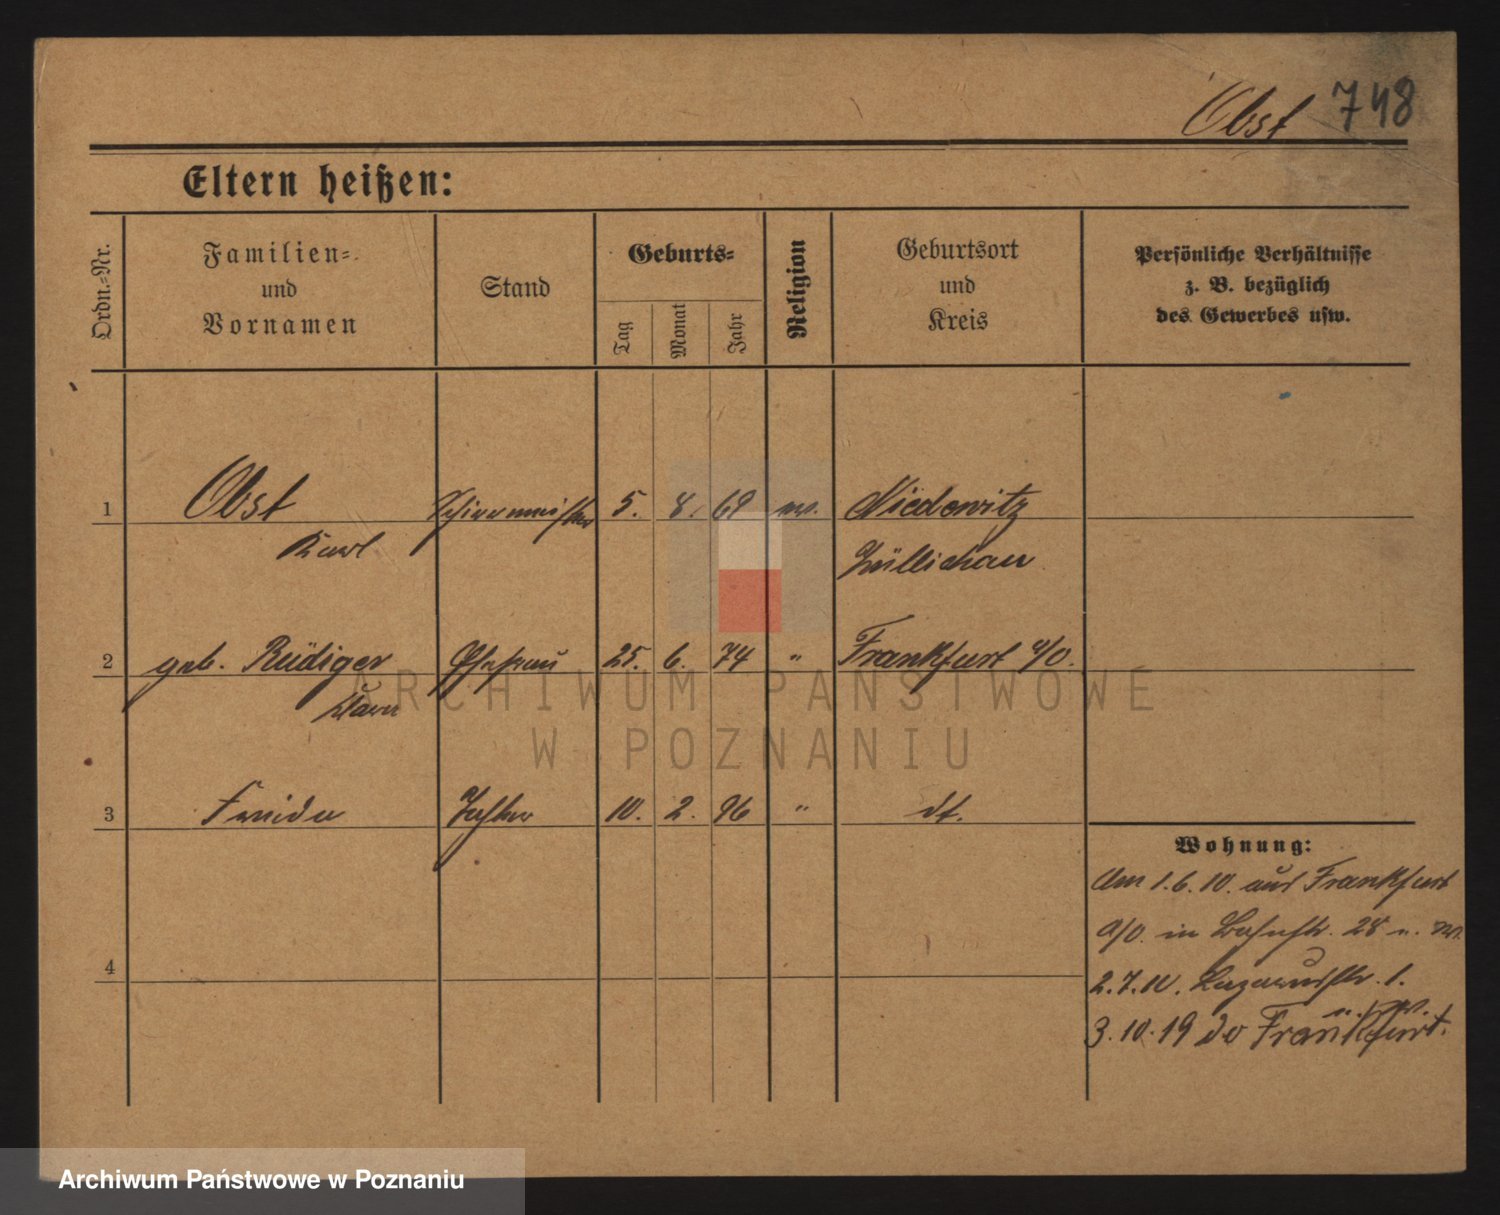 Obst 748
Eltern heißen:
Ordn.-Nr.
Familien-
und
Vornamen
Stand
Geburts-
Tag
Monat
Jahr
Religion
Geburtsort
und
Kreis
Persönliche Verhältnisse
z. B. bezüglich
des Gewerbes usw.
1 Obst Schirrmeister 5. 8. 69 ev. Niedewitz
Karl Züllichau
2 geb. Rüdiger Ehefrau 25. 6. 74 " Frankfurt a/O.
3 Frieda Tochter 10. 2. 96 " dt.
Wohnung:
Am 1.6.10. aus Frankfurt
a/O. in Bahnstr. 28
4
2.7.10. Lazarusstr. 1.
3.10.19 do Frankfurt.
ARCHIWUM PAŃSTWOWE
W POZNANIU
Archiwum Państwowe w Poznaniu